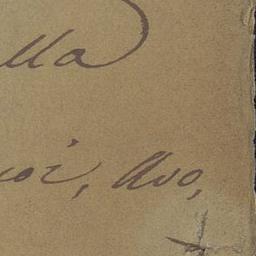 lla
coi, Avo,